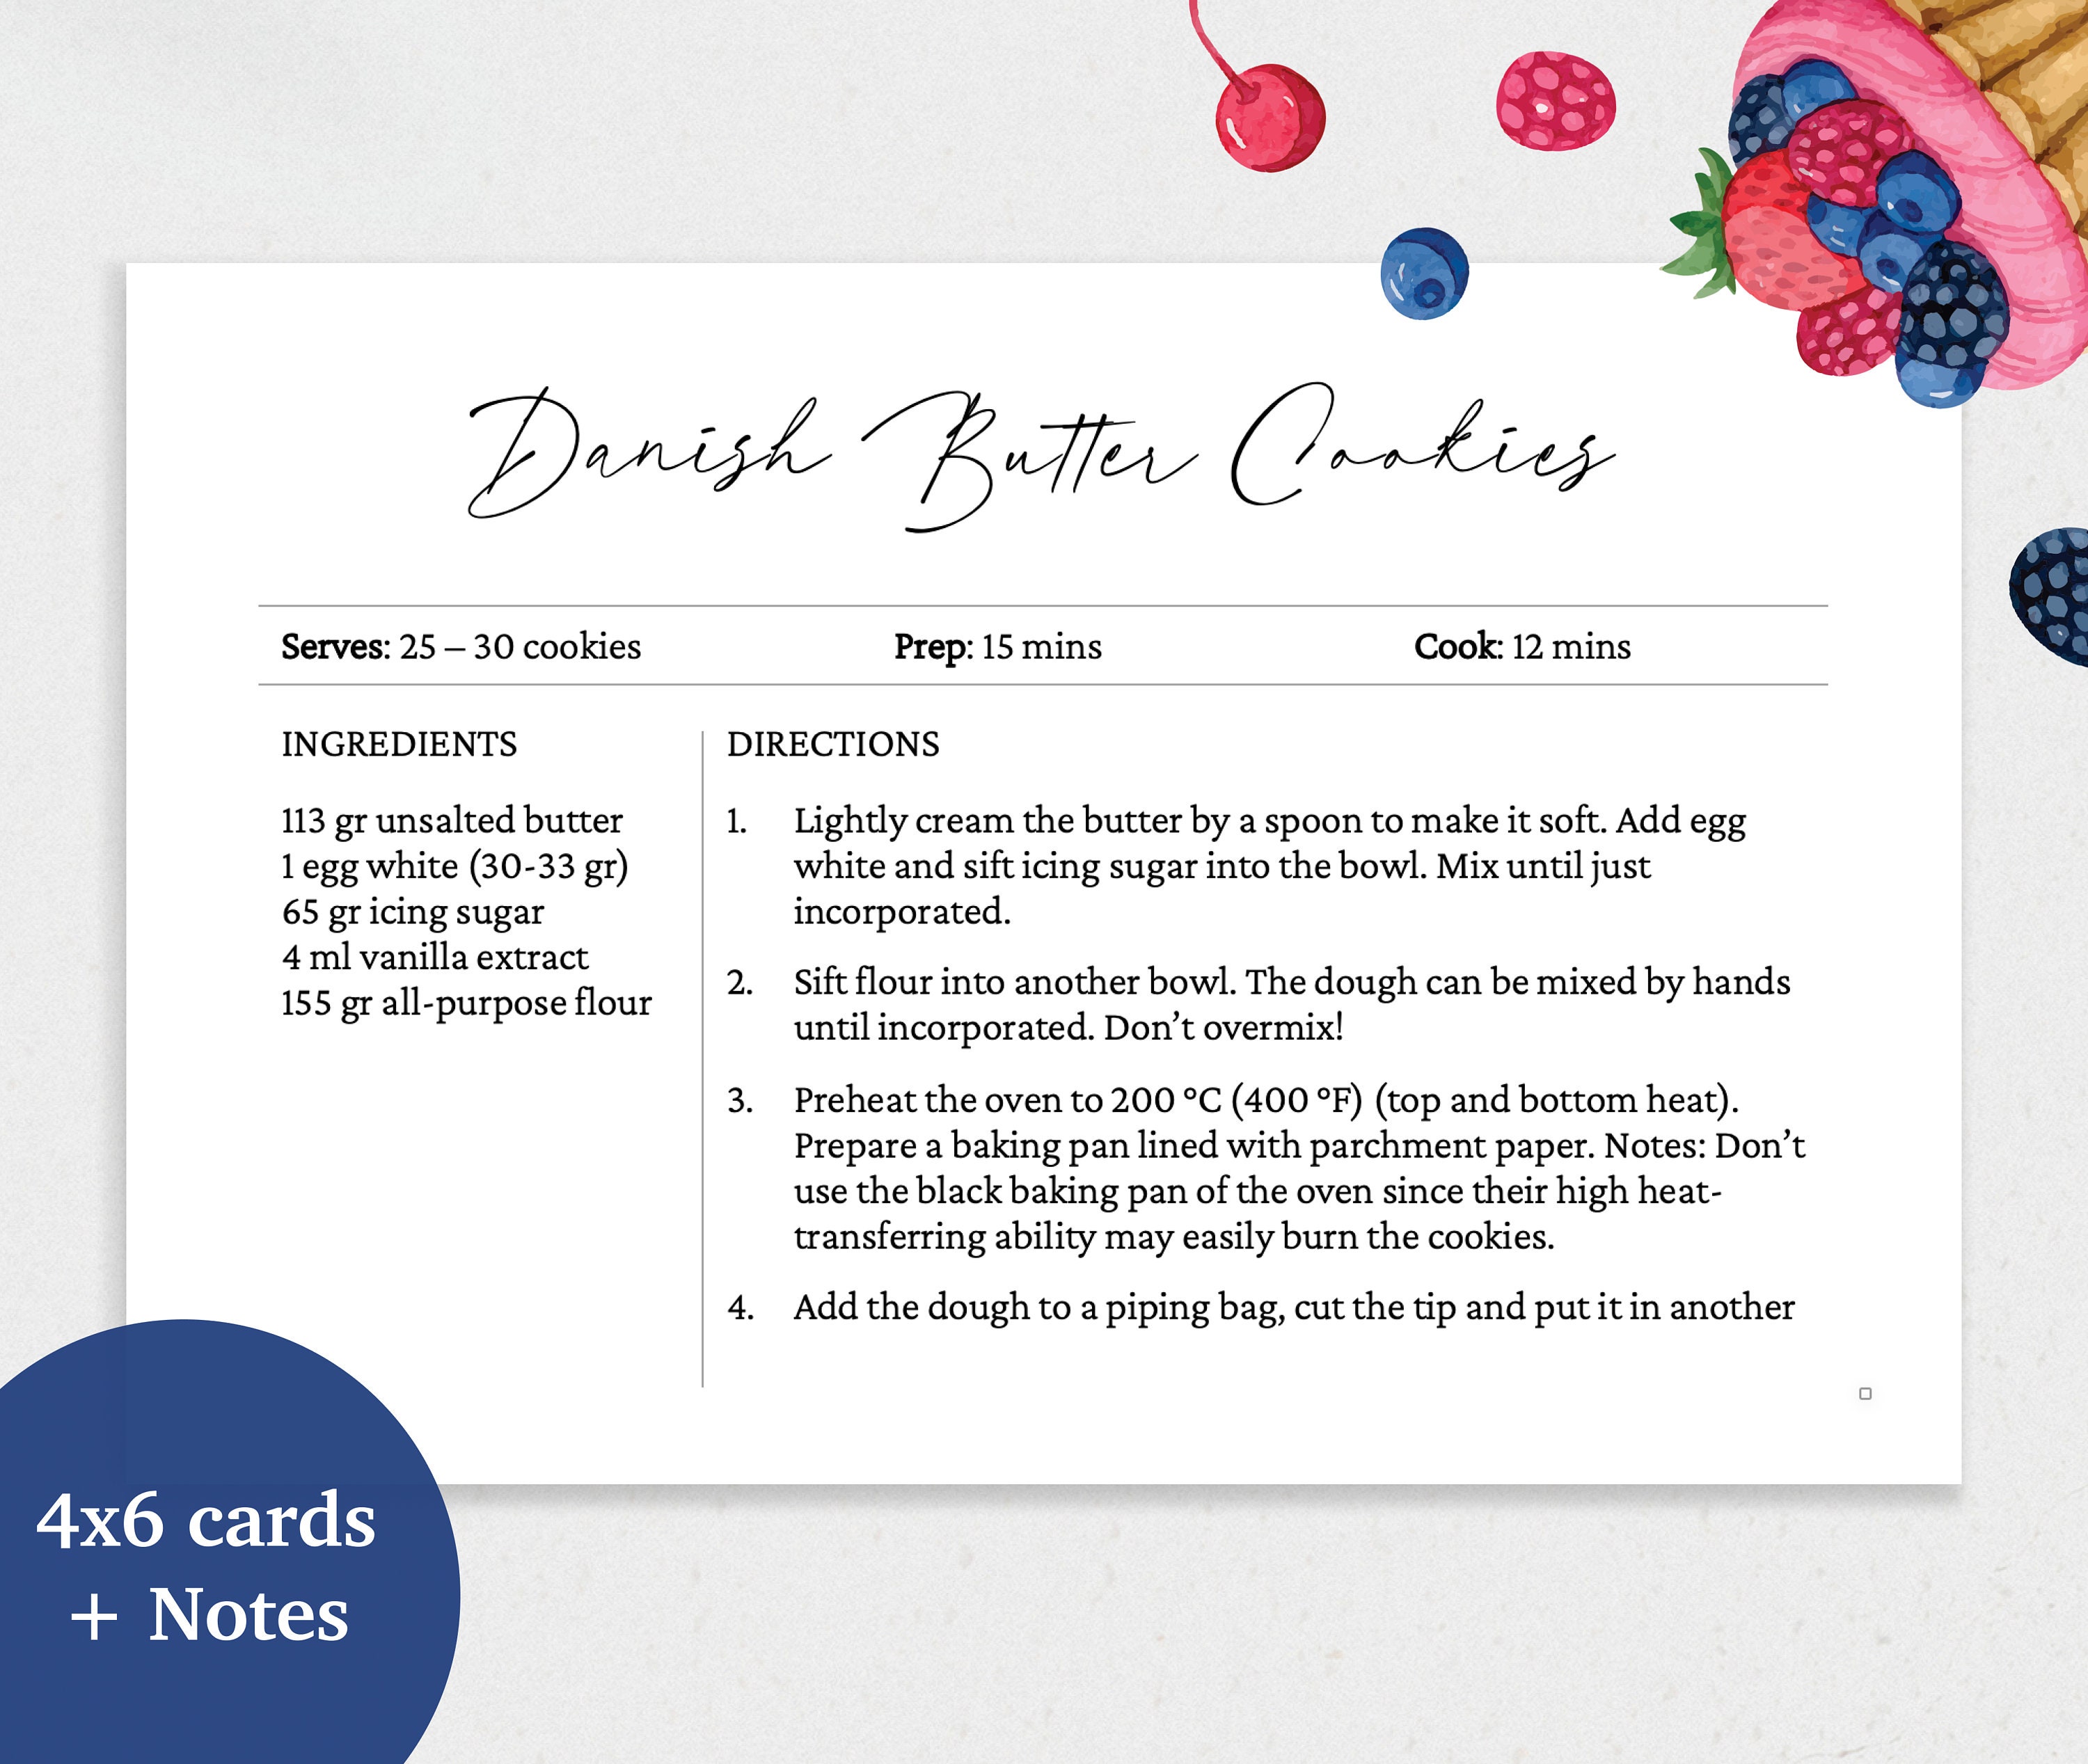 Danish Butter Cookies
Serves: 25 – 30 cookies
Prep: 15 mins
Cook: 12 mins
INGREDIENTS
113 gr unsalted butter
1 egg white (30-33 gr)
65 gr icing sugar
4 ml vanilla extract
155 gr all-purpose flour
DIRECTIONS
1. Lightly cream the butter by a spoon to make it soft. Add egg
white and sift icing sugar into the bowl. Mix until just
incorporated.
2. Sift flour into another bowl. The dough can be mixed by hands
until incorporated. Don’t overmix!
3. Preheat the oven to 200 °C (400 °F) (top and bottom heat).
Prepare a baking pan lined with parchment paper. Notes: Don’t
use the black baking pan of the oven since their high heat-
transferring ability may easily burn the cookies.
4. Add the dough to a piping bag, cut the tip and put it in another
4x6 cards
+ Notes